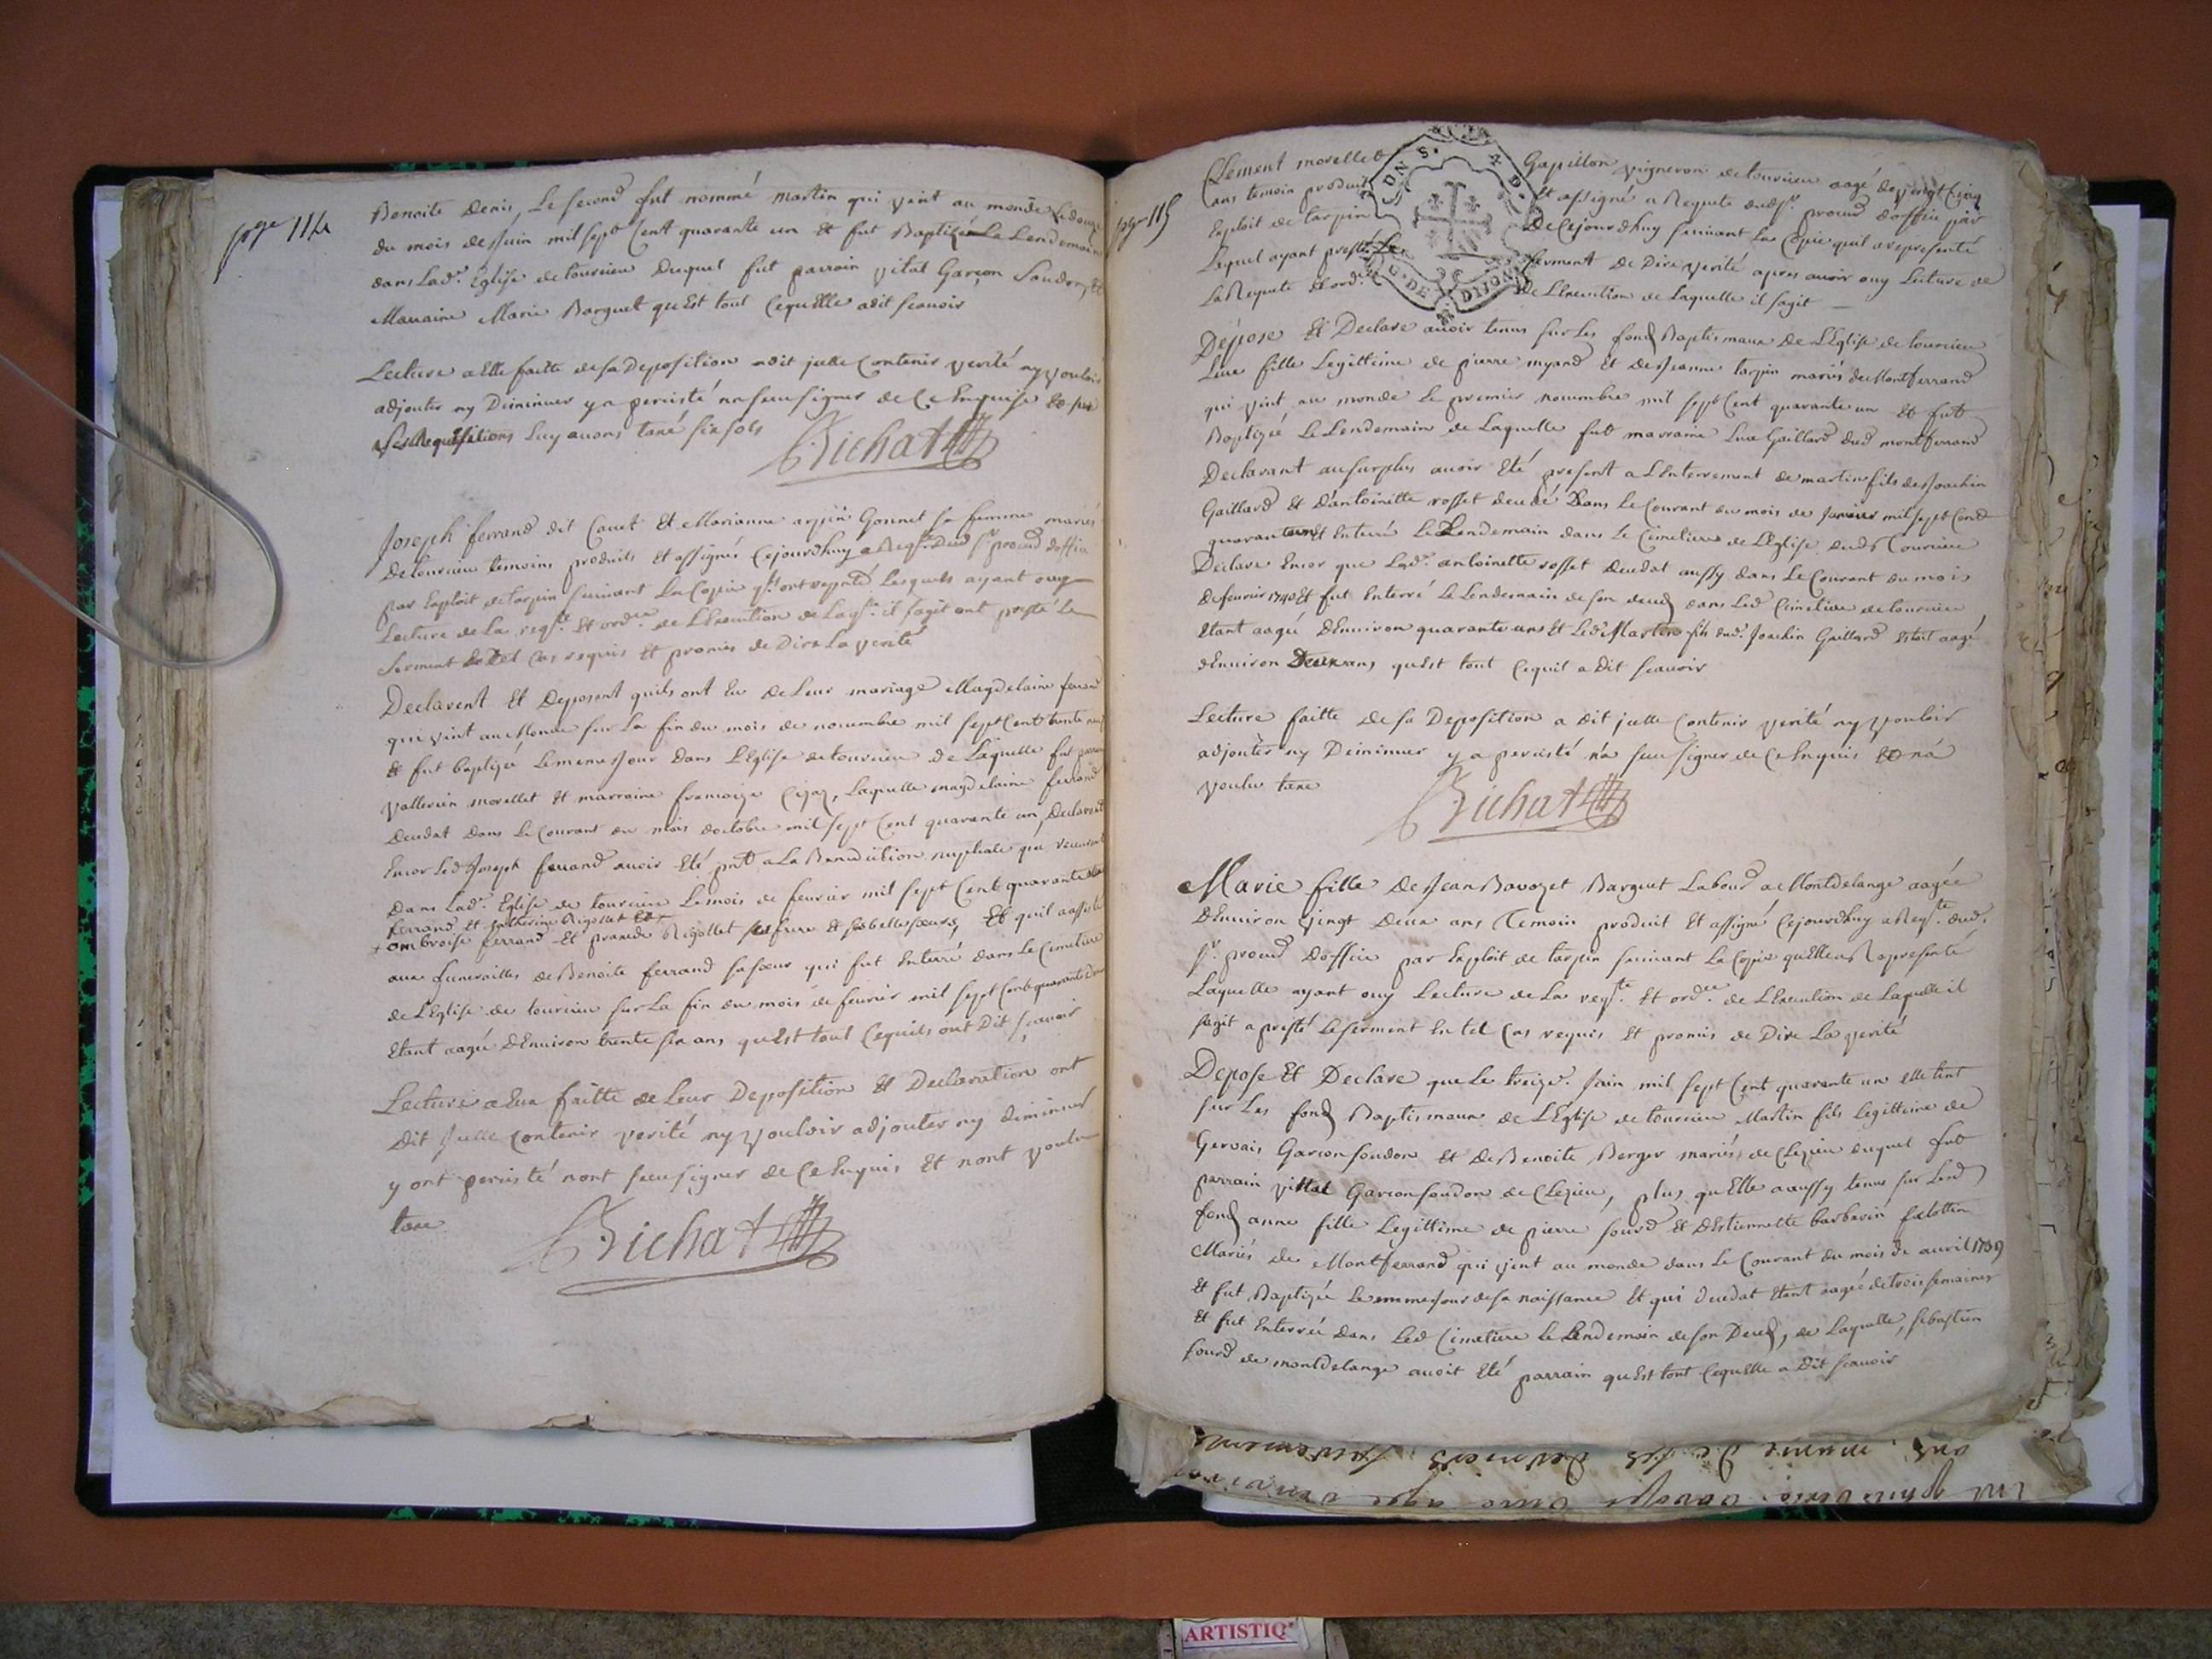 page 114
Benoite Denis, Le second fut nommé martin qui vint au monde Le douze
du mois de Juin mil sept Cent quarante un Et fut Baptizé Le Lendemain
dans Lad.e Eglise de tourcieu Duquel fut parrain vital Garçon Soudon, Et
Maraine Marie Barguet qu Est tout Cequ Elle adit scauoir
Lecture a Elle faitte de sa Deposition adit jcelle Contenir verité ny vouloir
adjouter ny Diminuer y a percisté na sceu signer de Ce Enquise Et sur
ses Requisitions Luy auons taxé six sols
Richat
Joseph ferrand dit Cauet Et Marianne arpin Gonnet sa femme mariés
de tourcieu temoins produits Et assignés Cejourdhuy a Reqte. Dud Sr. procud doffice
par Exploit de tarpin suiuant La Copie ql. ont repnté Lesquels ayant ouy
Lecture de La reqte. Et ordce. de L Execution de Laqle. il sagit ont presté Le
Serment En tel Cas requis Et promis de Dire La verité
Declarent Et Deposent quils ont Eu de Leur mariage Magdelaine ferrand
qui vint au Monde sur La fin du mois de nouembre mil sept Cent trente
Et fut baptizée Le meme Jour dans L Eglise de tourcieu de Laquelle fut parrain
vallerin morellet Et marraine francoize Laquelle magdelaine ferrand
decedat dans Le Courant du mois doctobre mil sept Cent quarante un, Declarent
Encor Led Joseph ferrand auoir Eté pnt a La Benediction nuptiale que receurent
dans Lad.e Eglise de tourcieu Le mois de feurier mil sept Cent quarante
ferrand Et Catherine Rigollet Et
+ ombroise ferrand Et Rigollet ses frere Et ses belles sœurs, Et quil a assisté
aux funerailles de Benoite ferrand sa sœur qui fut Enterré dans Le Cimetiere
de L Eglise de tourcieu sur La fin du mois de feurier mil sept Cent quarante deux
Etant aagée d Enuiron trente six ans qu Est tout Ce quils ont Dit scauoir
Lecture a Eux faitte de Leur Deposition Et Declaration ont
dit Jcelle Contenir verité ny vouloir adjouter ny diminuer
y ont percisté nont sceu signer de Ce Enquis Et nont voulu
taxe
Richat
page 115
Clement morellet Gapillon vigneron de tourcieu aagé de vingt Cinq
ans temoin produit Et assigné a Requete dud Sr. procud doffice par
Exploit de tarpin De Cejourdhuy suiuant La Copie quil a representé
Lequel ayant presté Le serment de Dire verité apres auoir ouy Lecture de
La Requete Et ord.ce de L Execution de Laquelle il sagit
DNS. DE DIJON
Depose Et Declare auoir tenus sur Les fonds Baptismaux de L Eglise de tourcieu
Luce fille Legittime de pierre myand Et de Jeanne tarpin mariés de Montferrand
qui vint au monde Le premier nouembre mil sept Cent quarante un Et fut
Baptizée Le Lendemain de Laquelle fut marraine Luce Gaillard dud montferrand
Declarant au surplus auoir Eté present a L Enterrement de martin fils de Joachin
Gaillard Et d antoinette rosset decedé Dans Le Courant du mois de Januier mil sept Cent
quarante Et Enterré Le Lendemain dans Le Cimetiere de L Eglise dud tourcieu
Declare Encor que Lad.e antoinette rosset decedat aussy dans Le Courant du mois
de feurier 1740 Et fut Enterré Le Lendemain de son decés dans Led Cimetiere de tourcieu
Etant aagée d Enuiron quarante ans Et Led Martin fils dud. Joachin Gaillard Etait aagé
d Enuiron Deux ans qu Est tout Cequil a dit scauoir
Lecture faitte de sa Deposition a dit jcelle Contenir verité ny vouloir
adjouter ny Diminuer y a percisté na sceu signer de Ce Enquis Et na
voulu taxe
Richat
Marie fille de Jean Bavozet Barguet Labour a Montdelange aagée
d Enuiron vingt deux ans Temoin produit Et assigné Cejourdhuy a Reqte. dud.
Sr. procud Doffice par Exploit de tarpin suiuant La Copie qu Elle a Representé
Laquelle ayant ouy Lecture de La reqte. Et ordce. de L Execution de Laquelle il
sagit a presté Le serment En tel Cas requis Et promis de Dire La verité
Depose Et Declare que Le treize. Juin mil sept Cent quarante un elle tint
sur Les fonds Baptismaux de L Eglise de tourcieu Martin fils Legittime de
Geruais Garcon soudon Et de Benoite Berger mariés de Clezieu duquel fut
parrain vittal Garcon soudon de Clezieu, plus qu Elle a aussy tenus sur Lesd
fonds anne fille Legittime de pierre sourd Et d Estiennette barbarin falottin
Mariés de Montferrand qui vint au monde dans Le Courant du mois de auril 1739
Et fut Baptizée Le meme Jour de sa naissance Et qui decedat Etant aagée de trois semaines
Et fut Enterrée dans Led Cimetiere Le Lendemain de son Decés, de Laquelle, sebastien
sourd de montdelange auoit Eté parrain qu Est tout Cequ Elle a Dit scauoir
ARTISTIQ